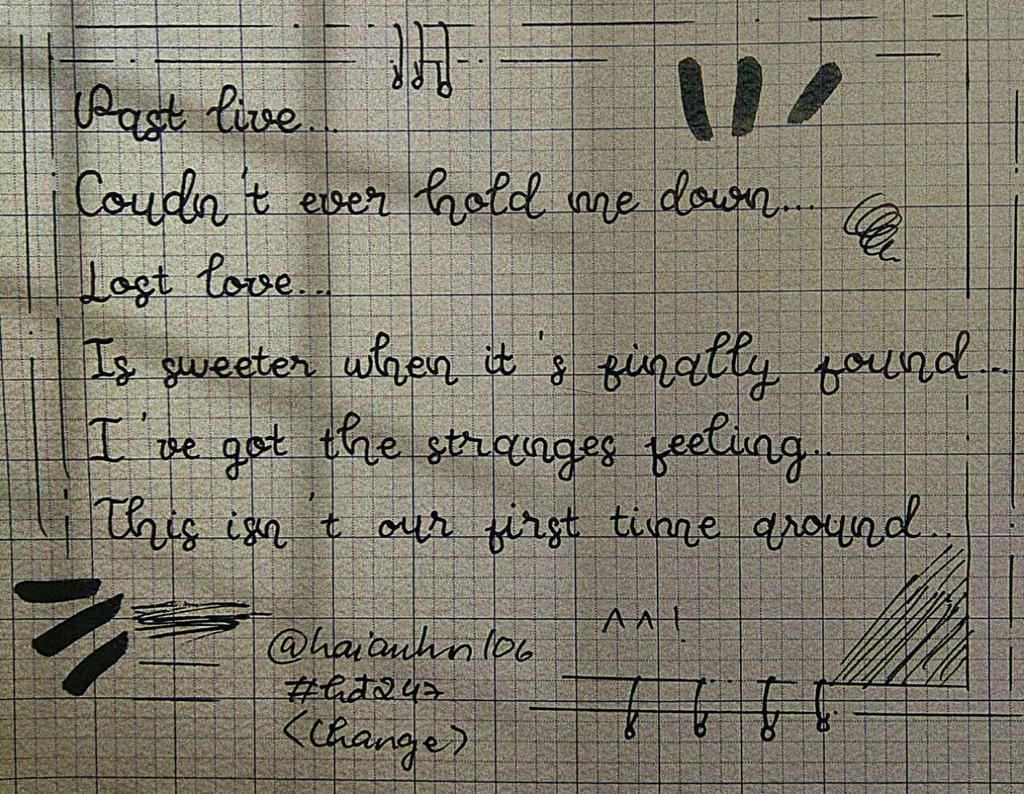 Past live...
Coudn't ever hold me down...
Lost love...
Is sweeter when it's finally found...
I've got the stranges feeling..
This isn't our first time around..
^^!
@haianhn106
#hd247
<Change>